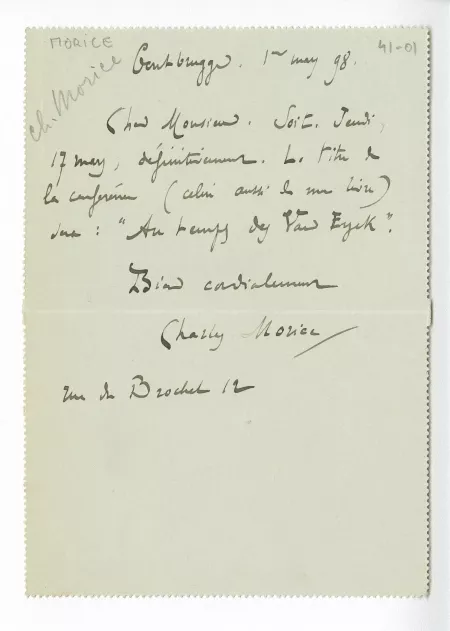 MORICE
41-01
Ch. Morice
Gentbrugge. 1er mars 98.
Cher Monsieur. Soit. Jeudi,
17 mars, définitivement. Le titre de
la conférence (celui aussi de mon livre)
sera : "Au temps des Van Eyck".
Bien cordialement
Charles Morice
rue du Brochet 12